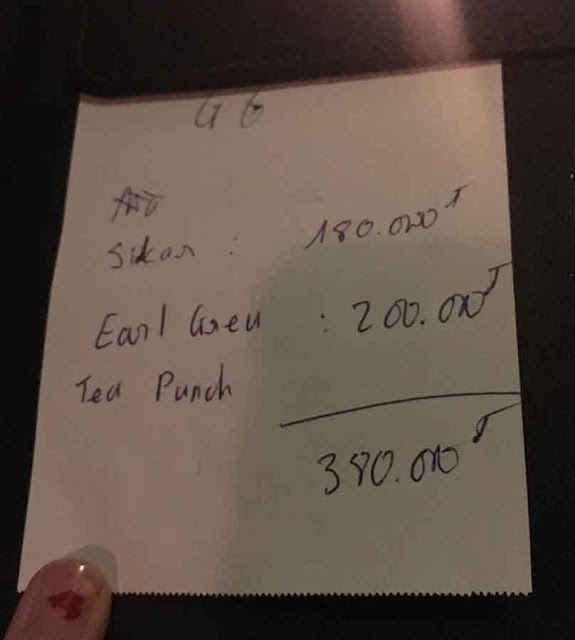 G 6
Sikar : 180.000 T
Earl Greu : 200.000 T
Tea Punch
380.000 T